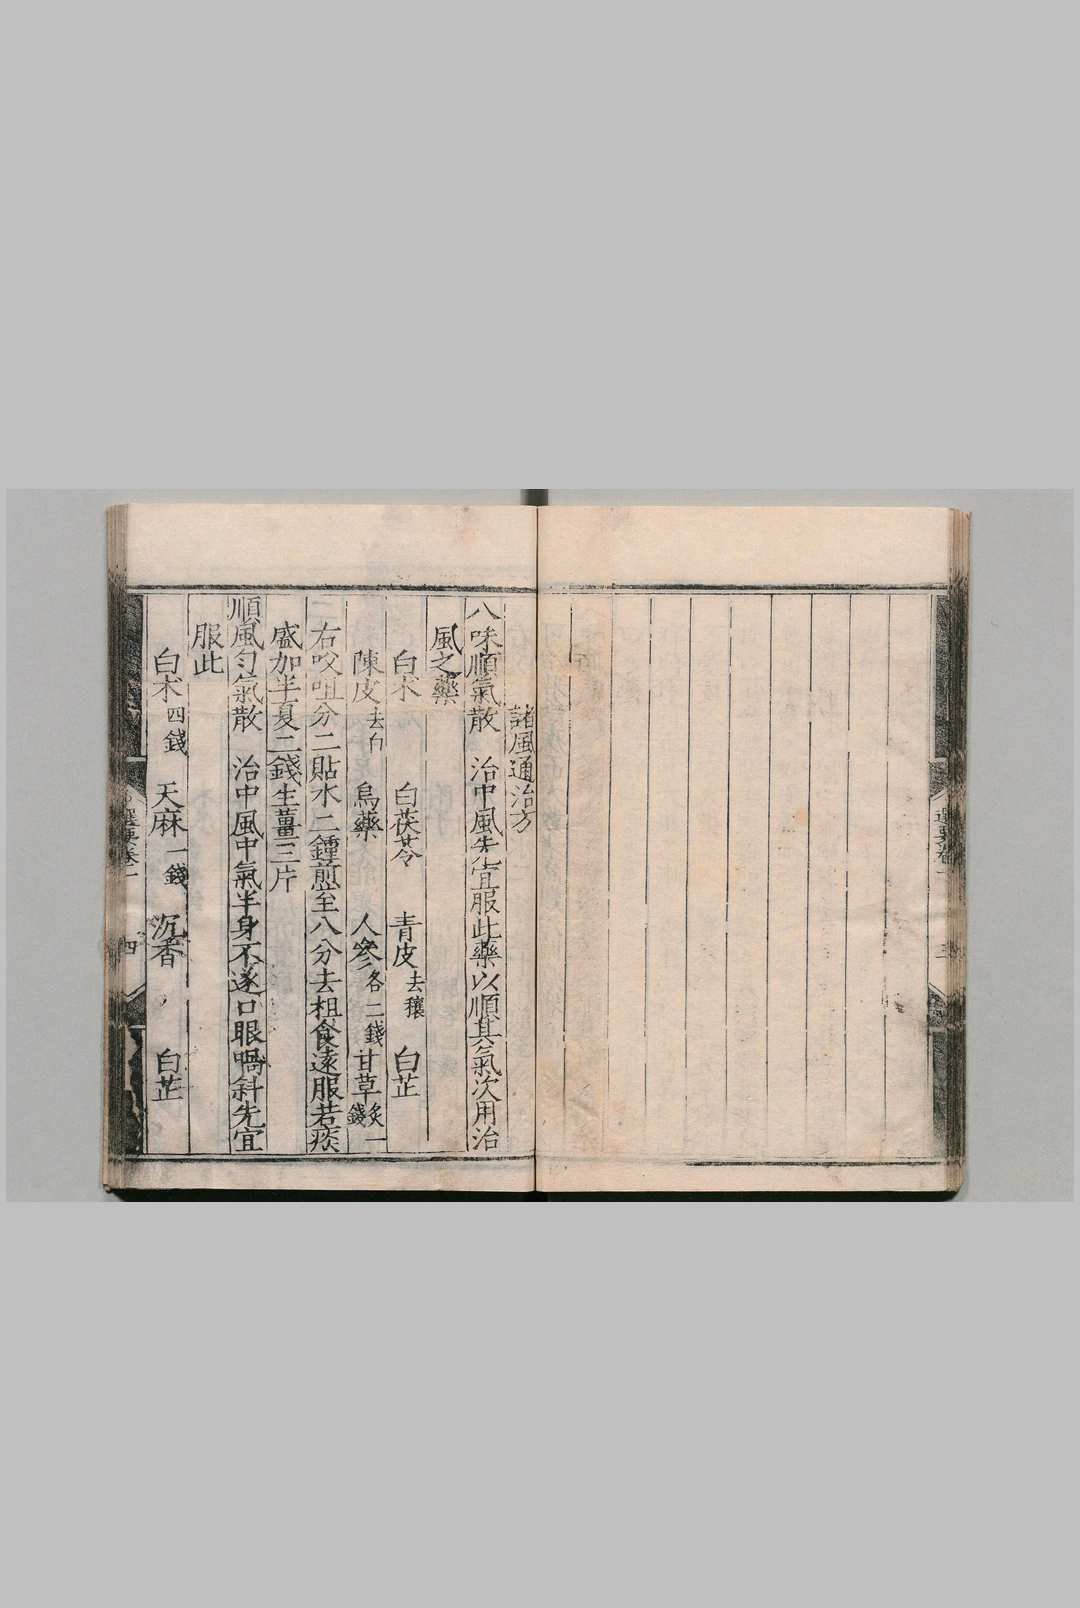 選要卷一
三
諸風通治方
八味順氣散　治中風先宜服此藥以順其氣次用治
風之藥
白朮　白茯苓　青皮去穰　白芷
陳皮去白　烏藥　人參各二錢　甘草炙一錢
右㕮咀分二貼水二鍾煎至八分去柤食遠服若痰
盛加半夏二錢生薑三片
順風勻氣散　治中風中氣半身不遂口眼喎斜先宜
服此
白朮四錢　天麻一錢　沉香　白芷
選要卷一
四